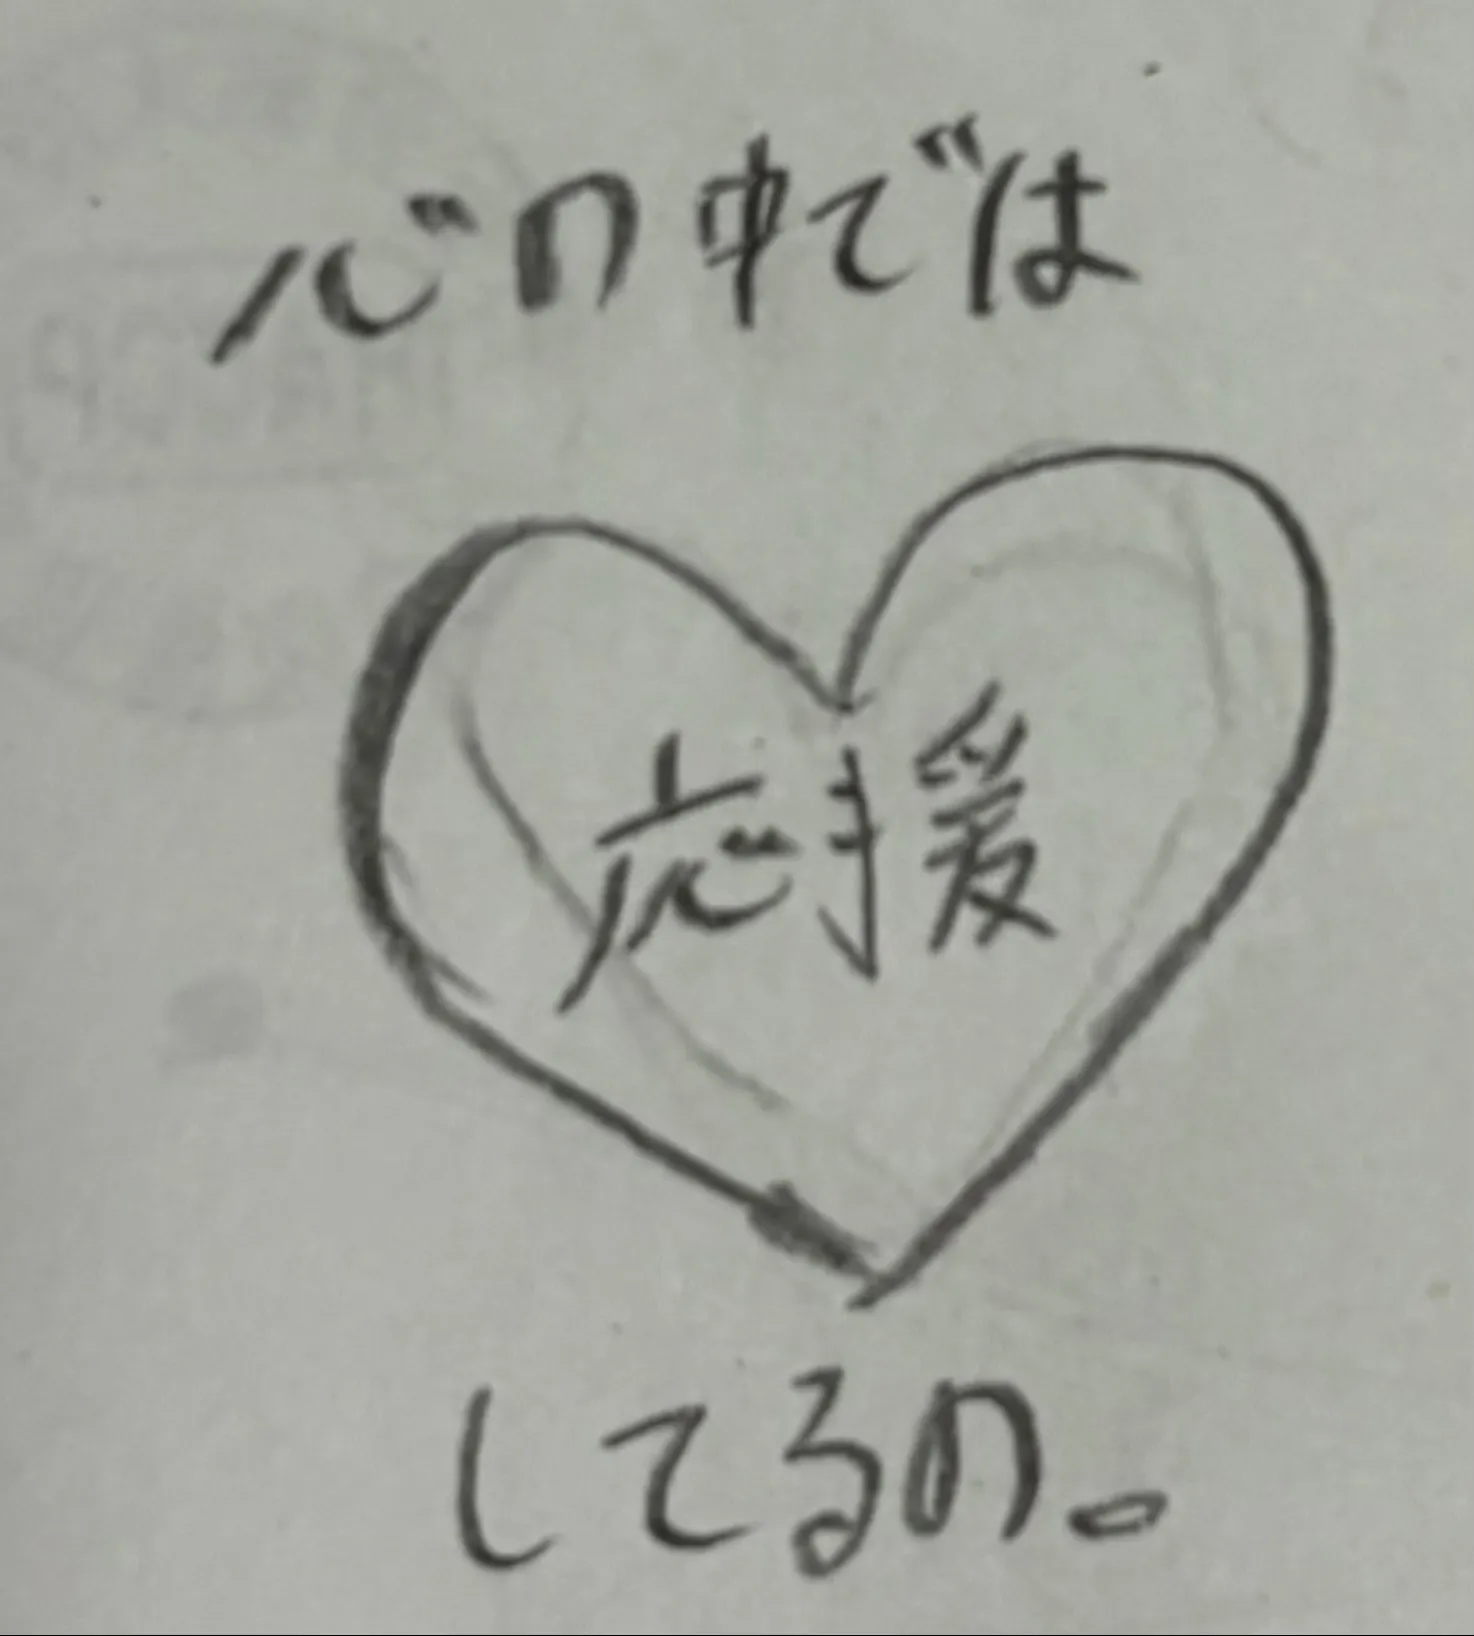 心の中では
応援
してるの。